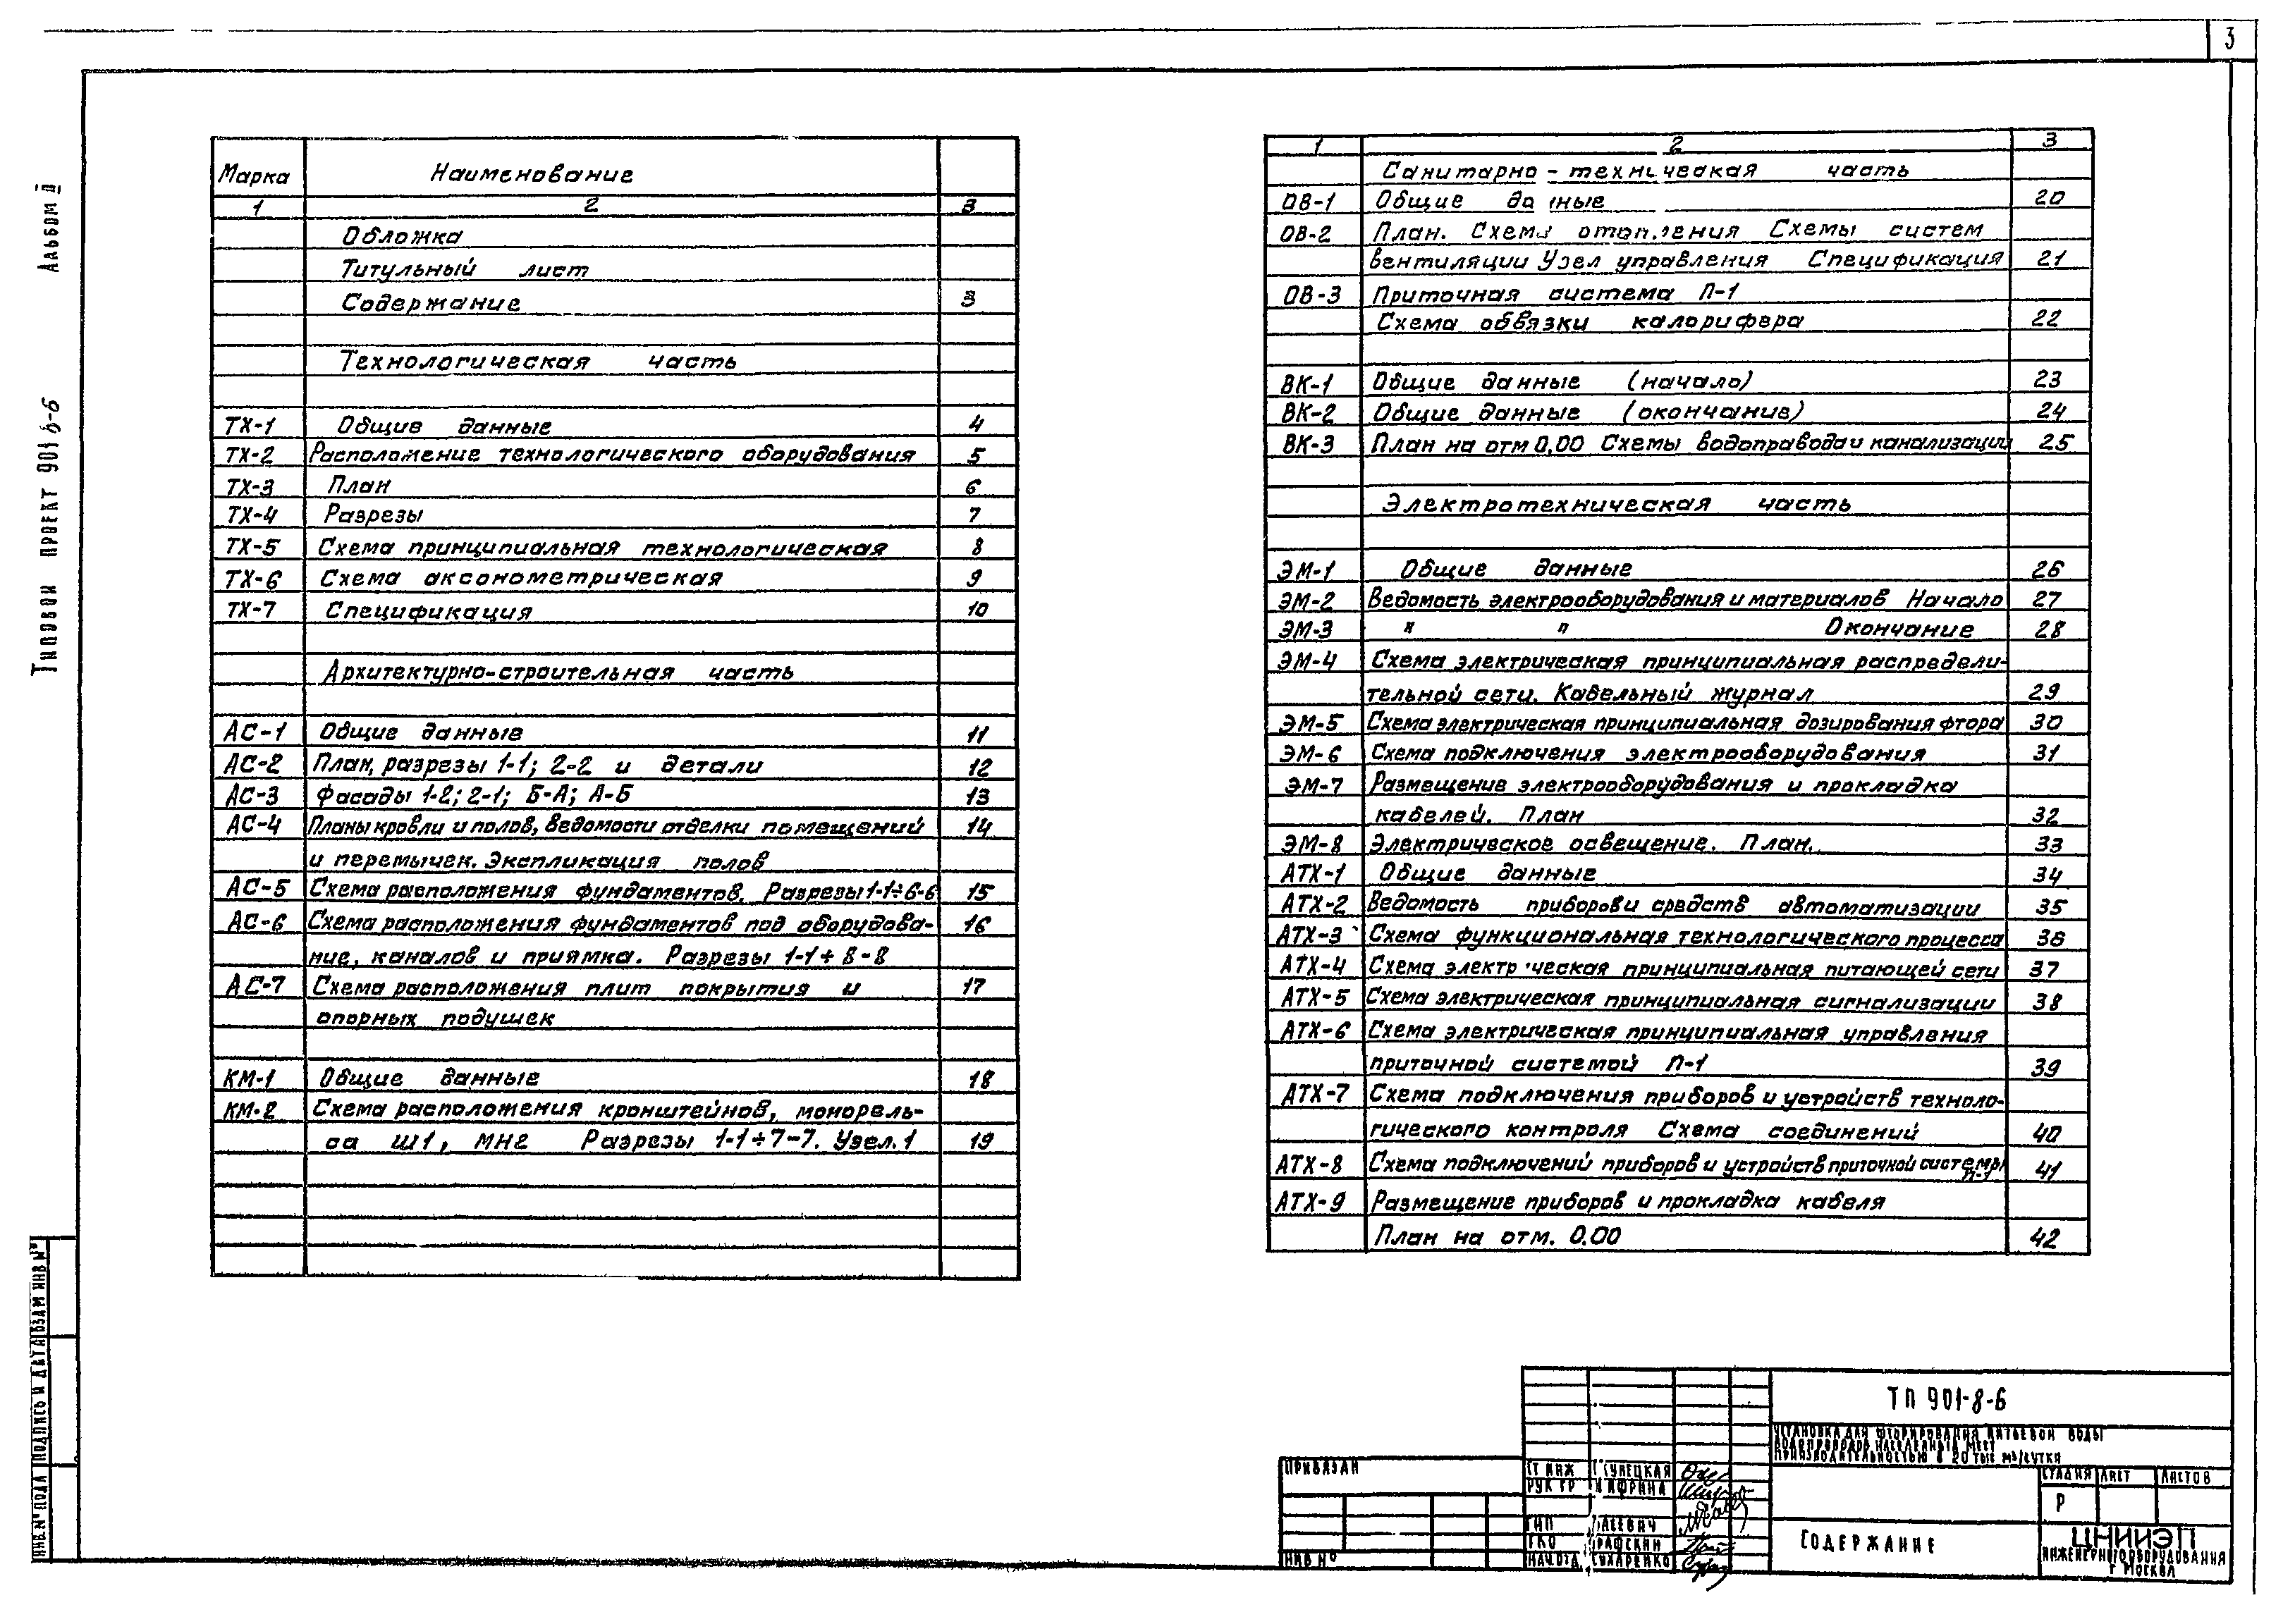 3
Альбом II
Типовой проект 901-8-6
Марка Наименование
1 2 3
Обложка
Титульный лист
Содержание 3
Технологическая часть
ТХ-1 Общие данные 4
ТХ-2 Расположение технологического оборудования 5
ТХ-3 План 6
ТХ-4 Разрезы 7
ТХ-5 Схема принципиальная технологическая 8
ТХ-6 Схема аксонометрическая 9
ТХ-7 Спецификация 10
Архитектурно-строительная часть
АС-1 Общие данные 11
АС-2 План, разрезы 1-1; 2-2 и детали 12
АС-3 Фасады 1-2; 2-1; Б-А; А-Б 13
АС-4 Планы кровли и полов, ведомости отделки помещений 14
и перемычек. Экспликация полов
АС-5 Схема расположения фундаментов. Разрезы 1-1÷6-6 15
АС-6 Схема расположения фундаментов под оборудова- 16
ние, каналов и приямка. Разрезы 1-1÷8-8
АС-7 Схема расположения плит покрытия и 17
опорных подушек
КМ-1 Общие данные 18
КМ-2 Схема расположения кронштейнов, монорель-
са Ш1, МН2 Разрезы 1-1÷7-7. Узел.1 19
1 2 3
Санитарно-техническая часть
ОВ-1 Общие данные 20
ОВ-2 План. Схема отопления Схемы систем
вентиляции Узел управления Спецификация 21
ОВ-3 Приточная система П-1
Схема обвязки калорифера 22
ВК-1 Общие данные (начало) 23
ВК-2 Общие данные (окончание) 24
ВК-3 План на отм 0,00 Схемы водопровода и канализации 25
Электротехническая часть
ЭМ-1 Общие данные 26
ЭМ-2 Ведомость электрооборудования и материалов Начало 27
ЭМ-3 " " Окончание 28
ЭМ-4 Схема электрическая принципиальная распредели-
тельной сети. Кабельный журнал 29
ЭМ-5 Схема электрическая принципиальная дозирования фтора 30
ЭМ-6 Схема подключения электрооборудования 31
ЭМ-7 Размещение электрооборудования и прокладка
кабелей. План 32
ЭМ-8 Электрическое освещение. План. 33
АТХ-1 Общие данные 34
АТХ-2 Ведомость приборов и средств автоматизации 35
АТХ-3 Схема функциональная технологического процесса 36
АТХ-4 Схема электрическая принципиальная питающей сети 37
АТХ-5 Схема электрическая принципиальная сигнализации 38
АТХ-6 Схема электрическая принципиальная управления
приточной системой П-1 39
АТХ-7 Схема подключения приборов и устройств техноло-
гического контроля Схема соединений 40
АТХ-8 Схема подключений приборов и устройств приточной системы П-1 41
АТХ-9 Размещение приборов и прокладка кабеля
План на отм. 0.00 42
Инв.№ подл Подпись и дата Взам инв №
Привязан
Инв №
Ст инж
Рук гр
ГИП
ГКО
Нач отд Сухаренко
ТП 901-8-6
Установка для фторирования питьевой воды
водопроводов населенных мест
производительностью 20 тыс м3/сутки
Стадия Лист Листов
Р
Содержание
ЦНИИЭП
инженерного оборудования
г Москва